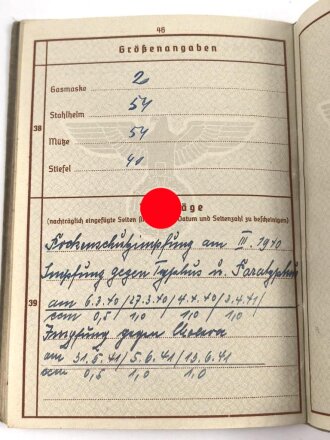 46
Größenangaben
Gasmaske 2
Stahlheim 54
38
Mütze 54
Stiefel 40
äge
(nachträglich eingefügte Seiten Datum und Seitenzahl zu bescheinigen)
Pockenschutzimpfung am III. 1940
Impfung gegen Typhus u. Paratyphus
39
am 6.3.40/27.3.40/4.4.40/3.4.41/
ccm 0,5 1,0 1,0 1,0
Impfung gegen Cholera
am 31.5.41/5.6.41/13.6.41
ccm 0,5 1,0 1,0